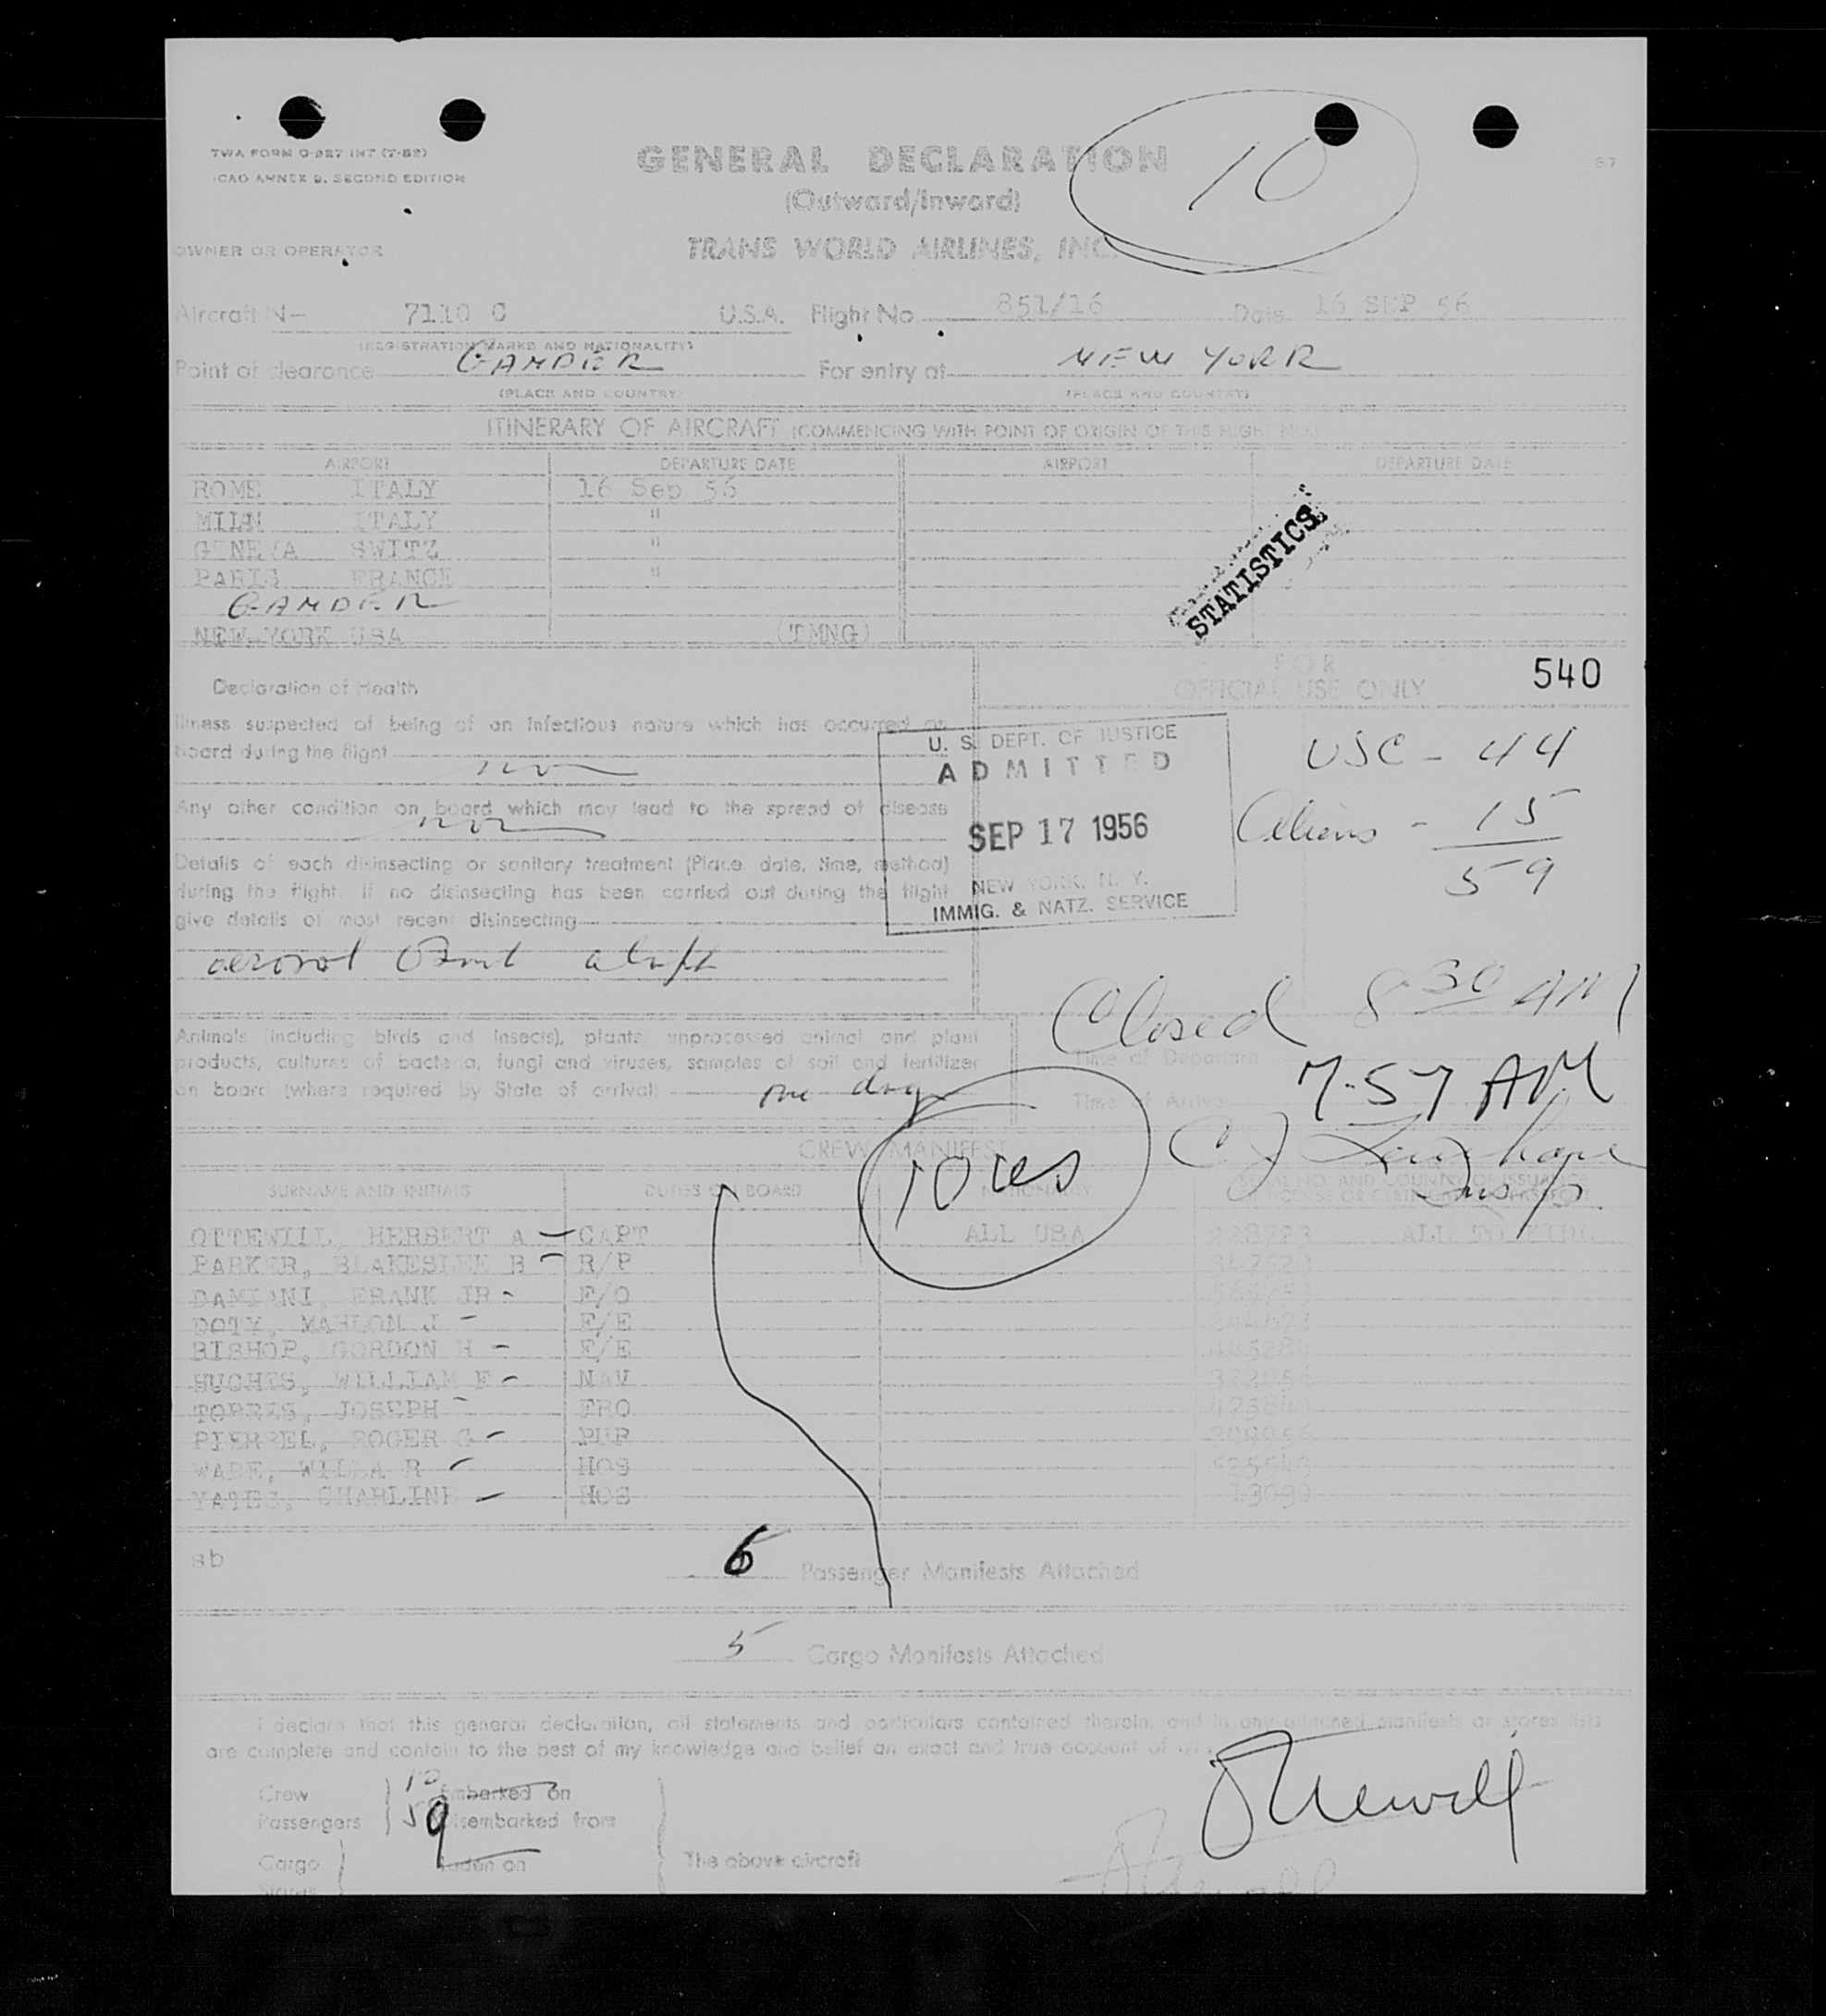 TWA FORM O-927 INT (7-52)
ICAO ANNEX 9, SECOND EDITION
GENERAL DECLARATION
(Outward/Inward)
10
OWNER OR OPERATOR
TRANS WORLD AIRLINES, INC.
Aircraft N- 7110 C U.S.A. Flight No 851/16 Date 16 SEP 56
(REGISTRATION MARKS AND NATIONALITY)
Point of clearance GANDER For entry at NEW YORK
(PLACE AND COUNTRY) (PLACE AND COUNTRY)
ITINERARY OF AIRCRAFT (COMMENCING WITH POINT OF ORIGIN OF THIS FLIGHT NO.)
AIRPORT DEPARTURE DATE AIRPORT DEPARTURE DATE
ROME ITALY 16 Sep 56
MILN ITALY "
GENEVA SWITZ "
PARIS FRANCE "
GANDER
NEW YORK USA (TMNG)
STATISTICS
FOR
OFFICIAL USE ONLY
540
Declaration of Health
Illness suspected of being of an infectious nature which has occurred on
board during the flight
Any other condition on board which may lead to the spread of disease
Details of each disinsecting or sanitary treatment (Place, date, time, method)
during the flight. If no disinsecting has been carried out during the flight
give details of most recent disinsecting
aerosol Bomb
U. S. DEPT. OF JUSTICE
ADMITTED
SEP 17 1956
NEW YORK, N. Y.
IMMIG. & NATZ. SERVICE
USC - 44
Aliens - 15
59
Closed 8 30 AM
Animals (including birds and insects), plants, unprocessed animal and plant
products, cultures of bacteria, fungi and viruses, samples of soil and fertilizer
on board (where required by State of arrival) one dog
Time of Departure
Time of Arrival 7-57 AM
Insp
CREW MANIFEST
10 ces
SURNAME AND INITIALS DUTIES ON BOARD NATIONALITY
OTTEWILL, HERBERT A - CAPT ALL USA
PARKER, BLAKESLEE B - R/P
DAMIANI, FRANK JR - F/O
DOTY, MAHLON J - F/E
BISHOP, GORDON H - F/E
HUGHES, WILLIAM F - NAV
TORRES, JOSEPH - FRO
PIERREL, ROGER G - PUR
WADE, WILLA R - HOS
YATES, CHARLINE - HOS
sb
6 Passenger Manifests Attached
5 Cargo Manifests Attached
I declare that this general declaration, all statements and particulars contained therein, and in any attached manifests or stores lists
are complete and contain to the best of my knowledge and belief an exact and true account of
Crew 10 Embarked on
Passengers 59 Disembarked from
Cargo Laden on The above aircraft
Stores